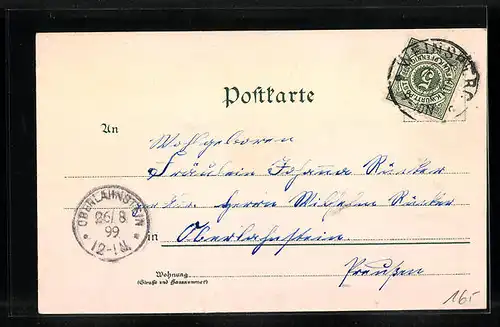 WEINSBERG
5
Postkarte
An
Wohlgeboren
Fräulein Johanna Rücker
Herrn Wilhelm Rücker
in Oberlahnstein
Preußen
OBERLAHNSTEIN
26/8
99
12-1N
Wohnung
(Straße und Hausnummer)
165